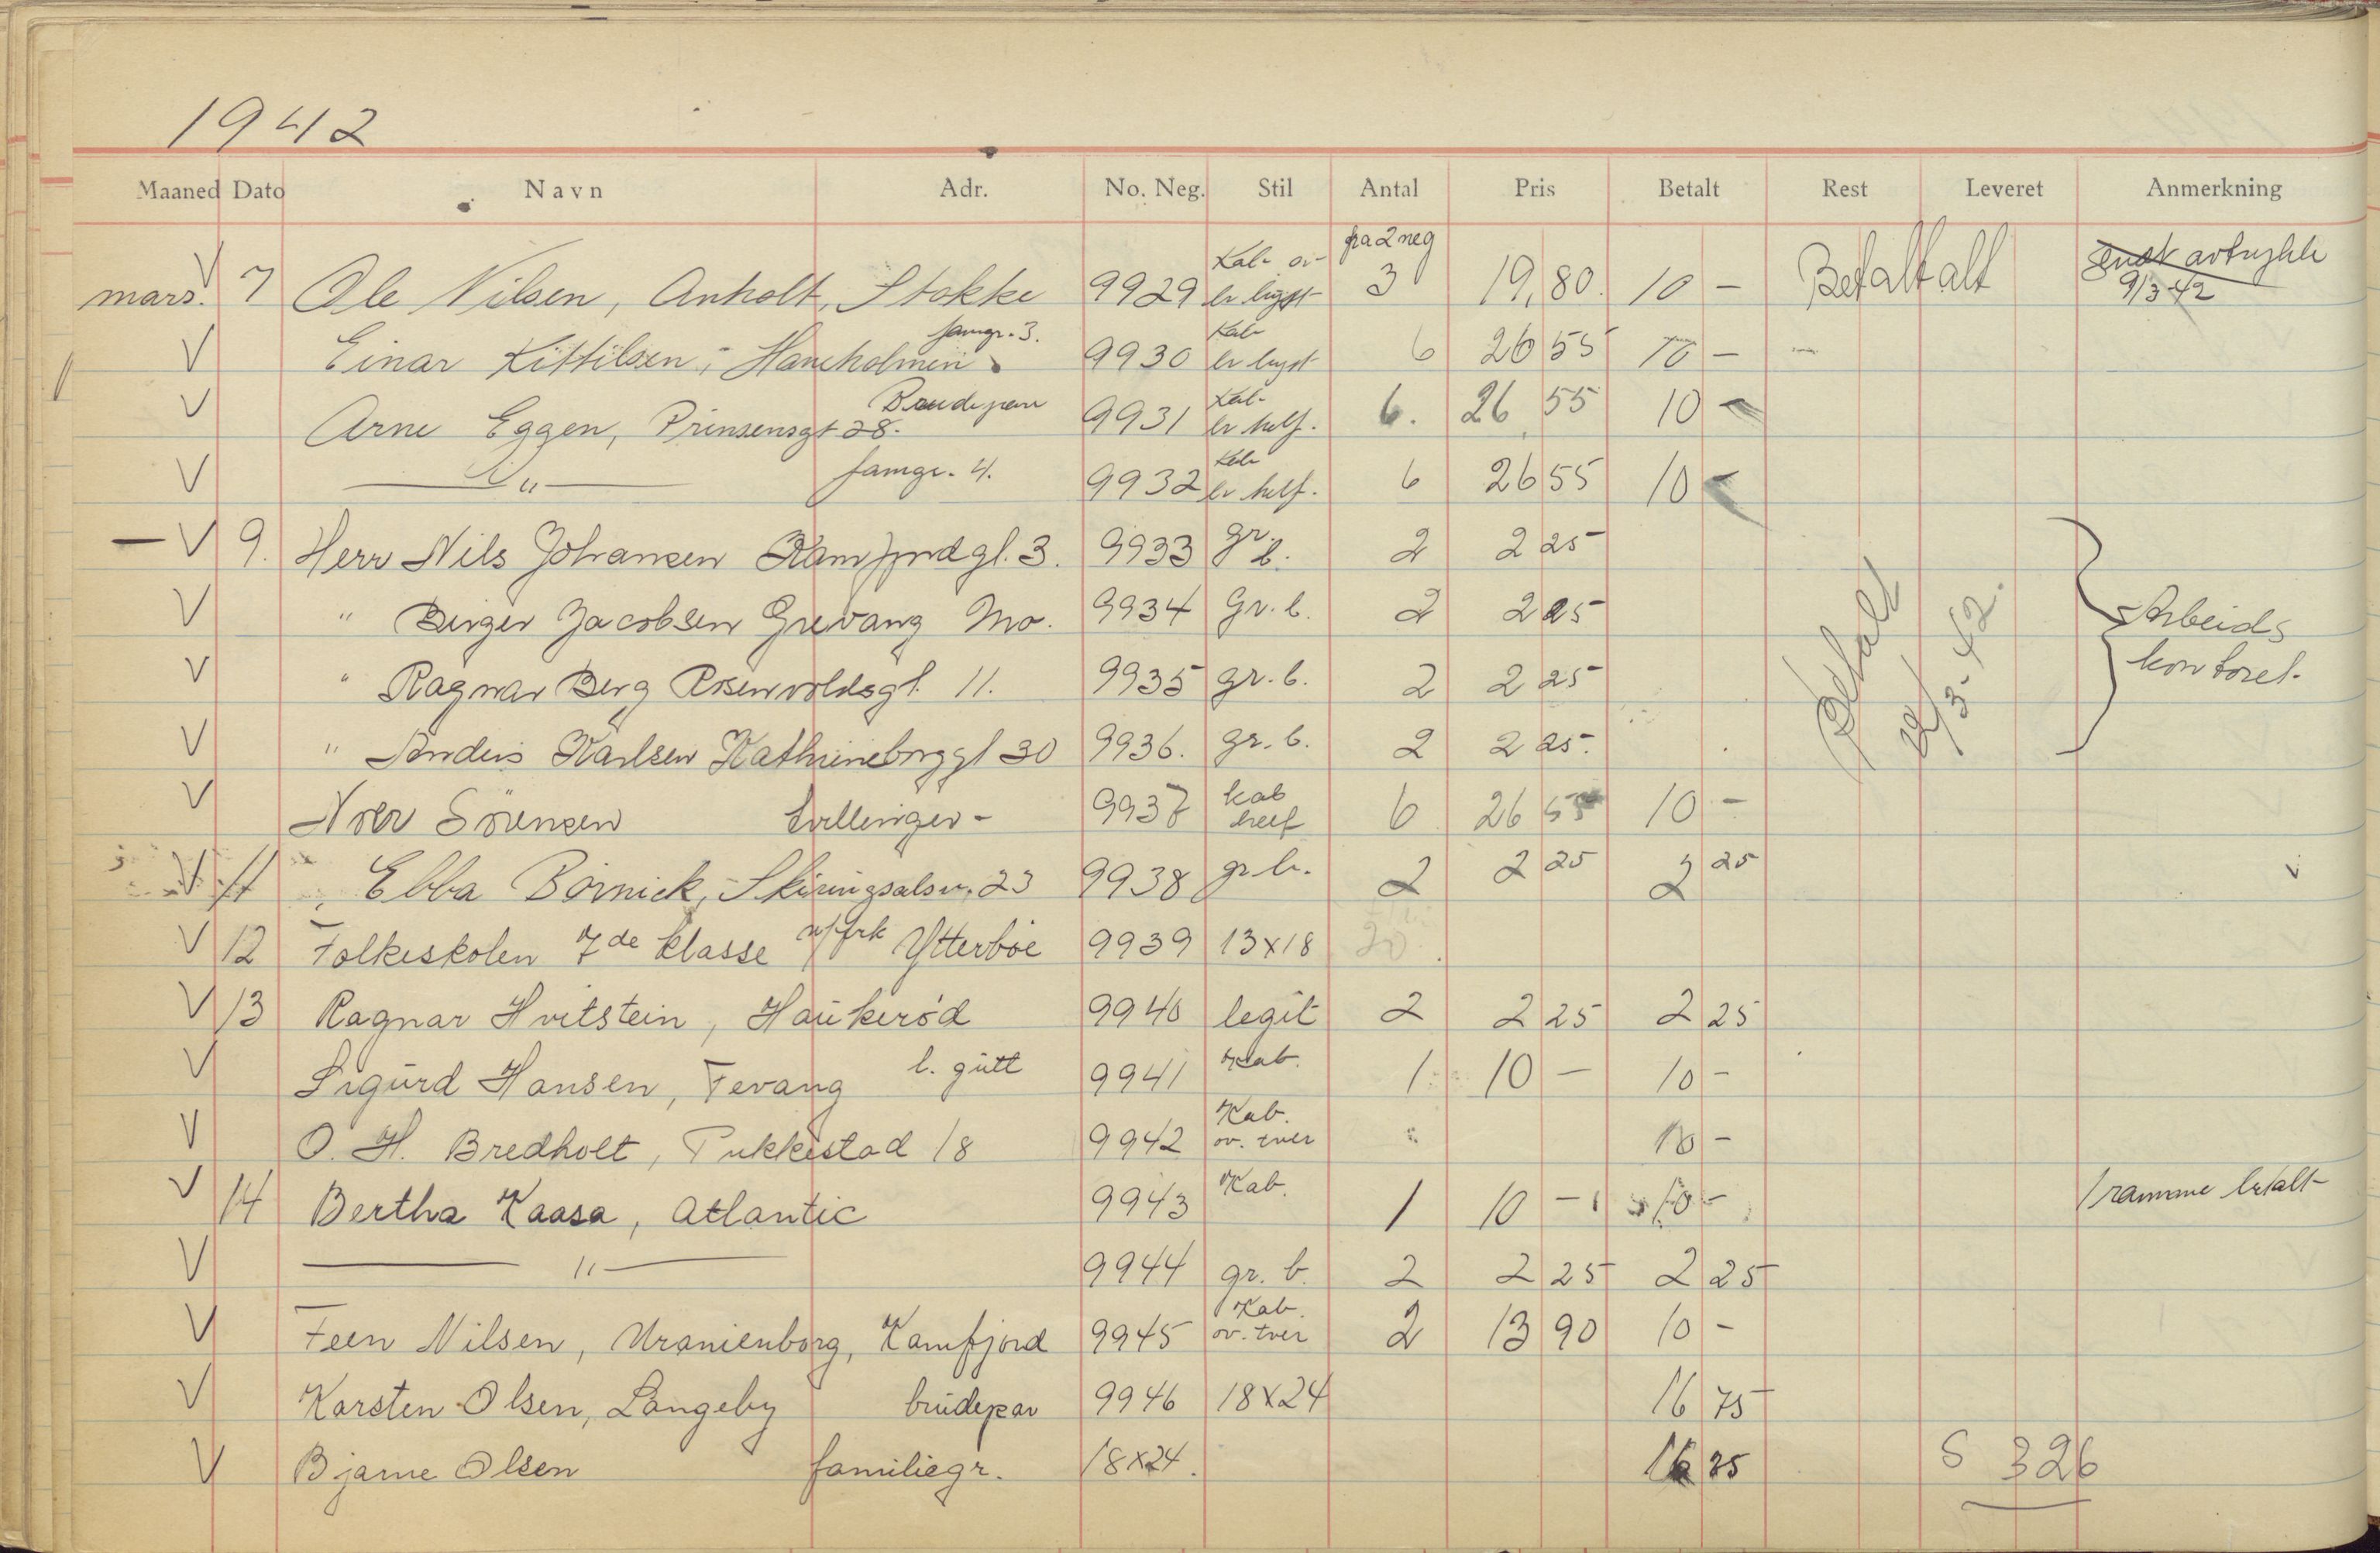 1942
Maaned Dato Navn Adr. No. Neg. Stil Antal Pris Betalt Rest Leveret Anmerkning
mars. V 7 Ole Nilsen, Anholt, Stokke 9929 Kab ov fra 2 neg 3 19,80. 10 - Betalt alt 9/3 42
V Einar Kittilsen, famgr. 3. 9930 Kab 6 26 55 10 -
V Arne Eggen, Prinsensgt 28. Brudepar 9931 Kab 6. 26 55 10 -
V — " — famgr. 4. 9932 Kab 6 26 55 10 -
— V 9. Herr Nils Johansen Kamfjordgt. 3. 9933 gr. b. 2 2 25
V " Birger Jacobsen Grevang Mo. 9934 Gr. b. 2 2 25
V " Ragnar Berg Rosenvoldsgt. 11. 9935 gr. b. 2 2 25
V " Anders Karlsen Kathrineborggt 30 9936. gr. b. 2 2 25.
Betalt 12/3-42.
Arbeids
kontoret.
V Noer Sörensen tvillinger - 9937 kab helf 6 26 55 10 -
V 11 Ebba Börnick, Skiringsalsv. 23 9938 gr b. 2 2 25 2 25
V 12 Folkeskolen 7de klasse v/frk Ytterböe 9939 13x18 20
V 13 Ragnar Hvitstein, Haukeröd 9940 legit 2 2 25 2 25
V Sigurd Hansen, Tevang l. gutt 9941 Kab. 1 10 - 10 -
V O. H. Bredholt, Pukkestad 18 9942 Kab. ov. tver 10 -
V 14 Bertha Kaasa, Atlantic 9943 Kab. 1 10 - 10 - 1 ramme betalt
V — " — 9944 gr. b. 2 2 25 2 25
V Feen Nilsen, Uranienborg, Kamfjord 9945 Kab. ov. tver 2 13 90 10 -
V Karsten Olsen, Langeby brudepar 9946 18x24 16 75
V Bjarne Olsen familiegr. 18x24. S 326